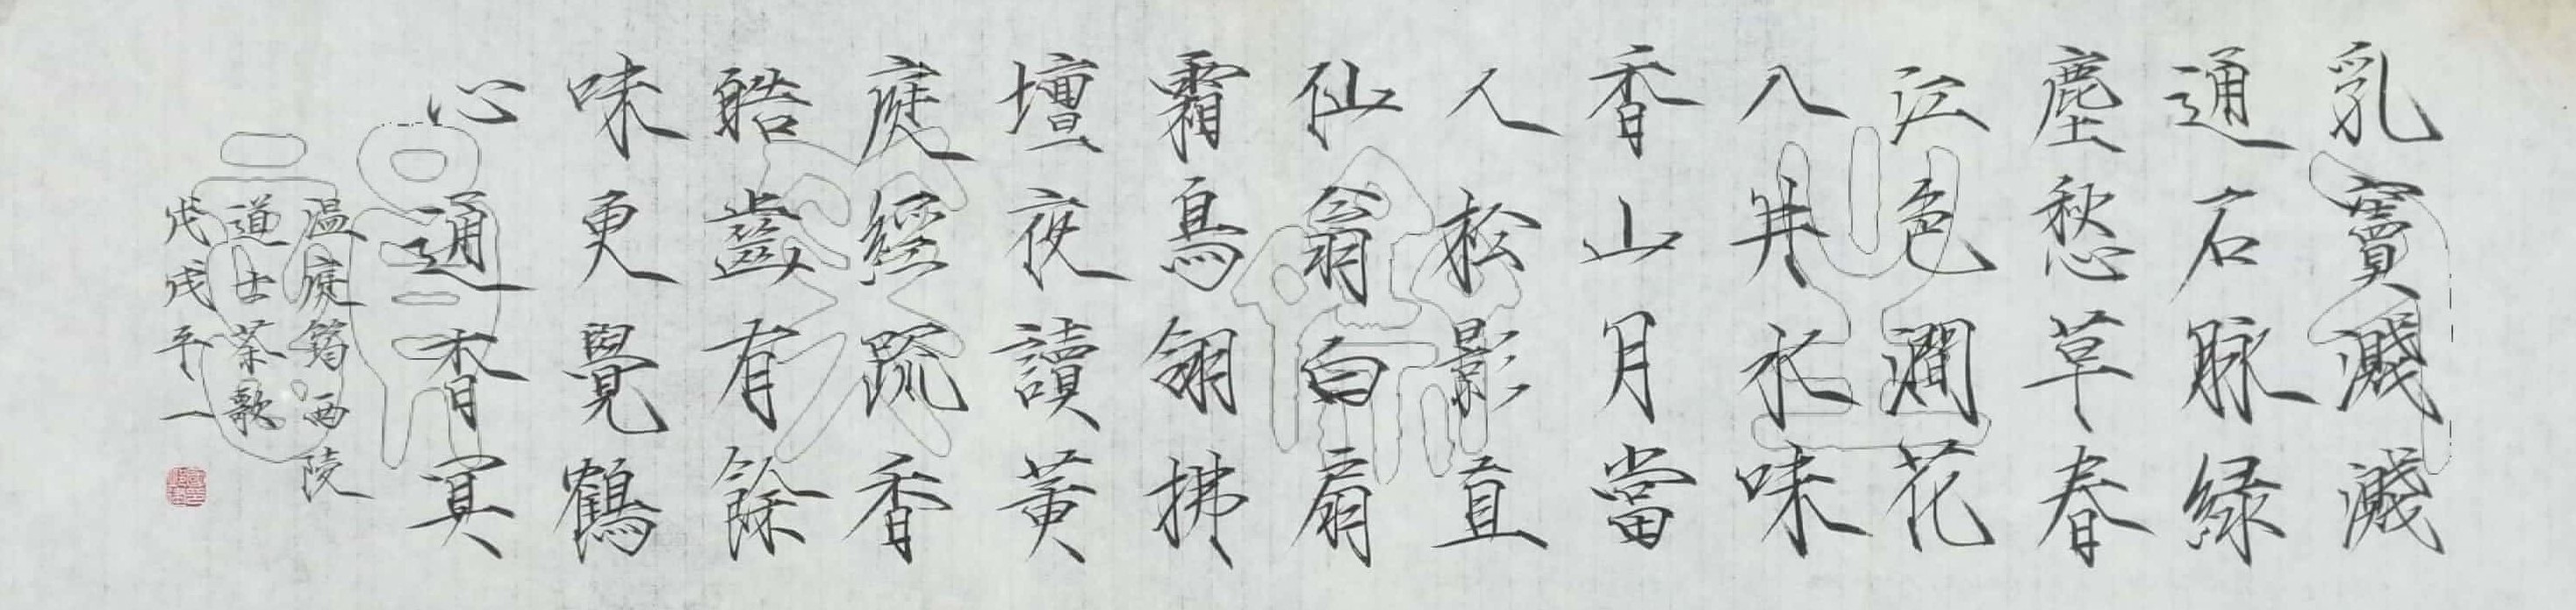 乳竇濺濺
通石脉緑
塵愁草春
江色澗花
入井水味
香山月當
人松影直
仙翁白扇
霜鳥翎拂
壇夜讀黄
庭經疏香
皓齒有餘
味更覺鶴
心通杳冥
温庭筠西陵
道士茶歌
戊戌平一